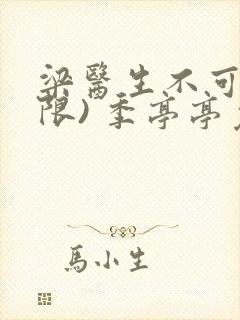 梁醫生不可
限) 季亭亭
馬小生